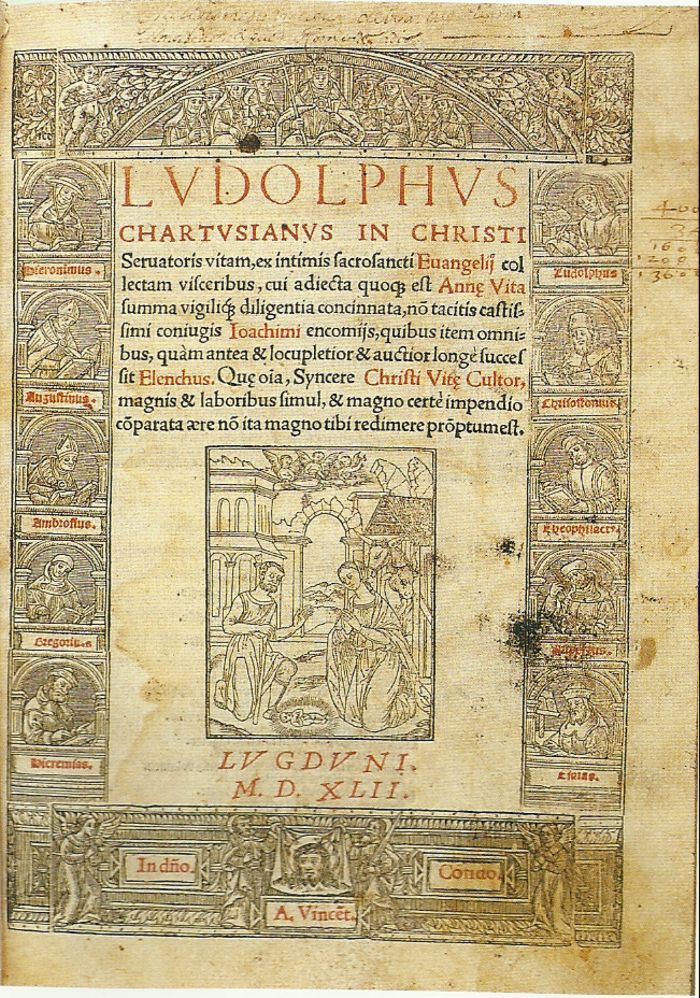 LVDOLPHVS
CHARTVSIANVS IN CHRISTI
Seruatoris vitam, ex intimis sacrosancti Euangelij col
lectam visceribus, cui adiecta quoqꝫ est Annę Vita
summa vigiliqꝫ diligentia concinnata, nõ tacitis castis-
simi coniugis Ioachimi encomijs, quibus item omni-
bus, quàm antea & locupletior & auctior longè succes
sit Elenchus. Quę oĩa, Syncere Christi Vitę Cultor,
magnis & laboribus simul, & magno certè impendio
cõparata ære nõ ita magno tibi redimere prõptumest.
Hieronimus.
Augustinus.
Ambrosius.
Gregorius
Hieremias.
Ludolphus
Chrisostomus
Theophilactꝰ.
Esaias.
400
1200
1360
LVGDVNI.
M. D. XLII.
In dño.
Confido.
A. Vincẽt.